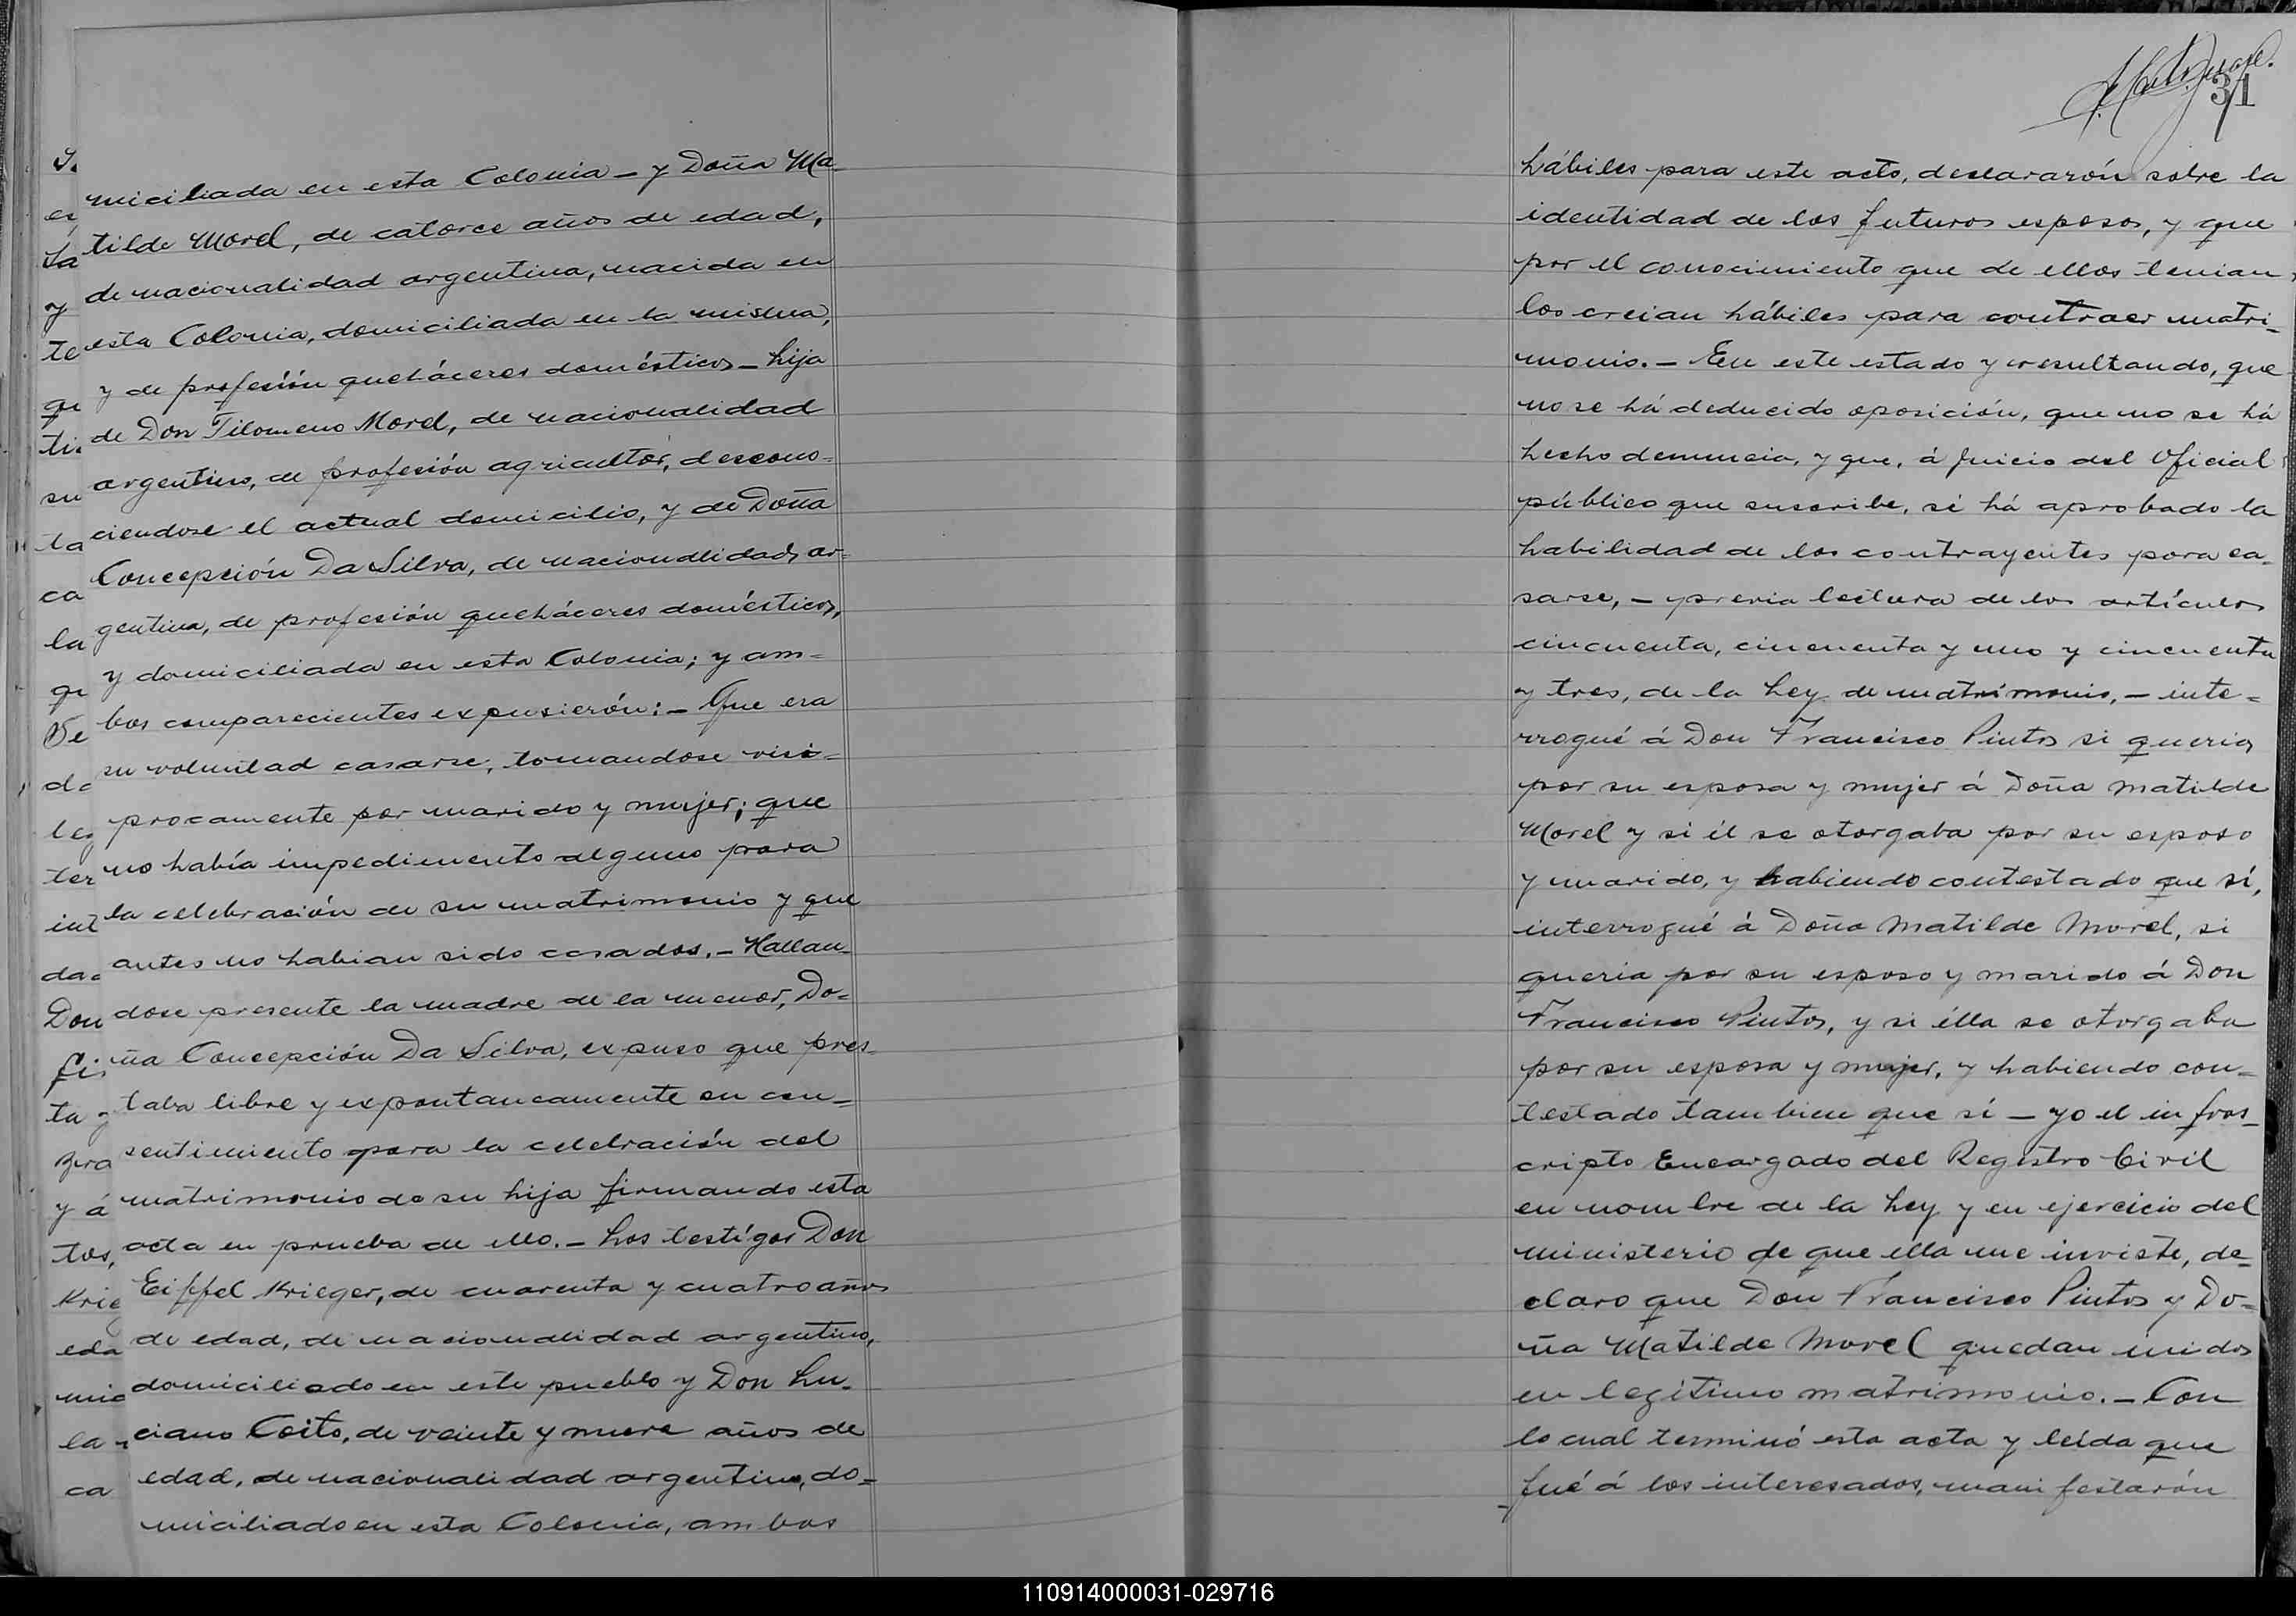 miciliada en esta Colonia – y Doña Ma-
tilde Morel, de catorce años de edad,
de nacionalidad argentina, nacida en
esta Colonia, domiciliada en la misma,
y de profesión queháceres domésticos – hija
de Don Filomeno Morel, de nacionalidad
argentino, de profesión agricultor, descono-
ciendose el actual domicilio, y de Doña
Concepción Da Silva, de nacionalidad ar-
gentina, de profesión queháceres domésticos,
y domiciliada en esta Colonia; y am-
bos comparecientes expusierón: – Que era
su voluntad casarse, tomandose reci-
procamente por marido y mujer; que
no había impedimento alguno para
la celebración de su matrimonio y que
antes no habian sido casados. – Hallan-
dose presente la madre de la menor, Do-
ña Concepción Da Silva, expuso que pres-
taba libre y expontaneamente su con-
sentimiento para la celebración del
matrimonio de su hija firmando esta
acta en prueba de ello. – Los testígos Don
Eiffel Krieger, de cuarenta y cuatro años
de edad, de nacionalidad argentino,
domiciliado en este pueblo y Don Lu-
ciano Coito, de veinte y nueve años de
edad, de nacionalidad argentino, do-
miciliado en esta Colonia, ambos
31
hábiles para este acto, declararón sobre la
identidad de los futuros esposos, y que
por el conocimiento que de ellos tenian,
los creian hábiles para contraer matri-
monio. – En este estado y resultando, que
no se há deducido oposición, que no se há
hecho denuncia, y que, á juicio del Oficial
público que suscribe, se há aprobado la
habilidad de los contrayentes para ca-
sarse, – y previa lectura de los artículos
cincuenta, cincuenta y uno y cincuenta
y tres, de la Ley de matrimonio, – inte-
rrogué á Don Francisco Pintos si queria
por su esposa y mujer á Doña Matilde
Morel y si él se otorgaba por su esposo
y marido, y habiendo contestado que sí,
interrogué á Doña Matilde Morel, si
queria por su esposo y marido á Don
Francisco Pintos, y si élla se otorgaba
por su esposa y mujer, y habiendo con-
testado tambien que sí – yo el infras-
cripto Encargado del Registro Civil
en nombre de la Ley y en ejercicio del
ministerio de que ella me inviste, de-
claro que Don Francisco Pintos y Do-
ña Matilde Morel quedan unidos
en legítimo matrimonio. – Con
lo cual terminó esta acta y leida que
fué á los interesados, manifestarón
110914000031-029716